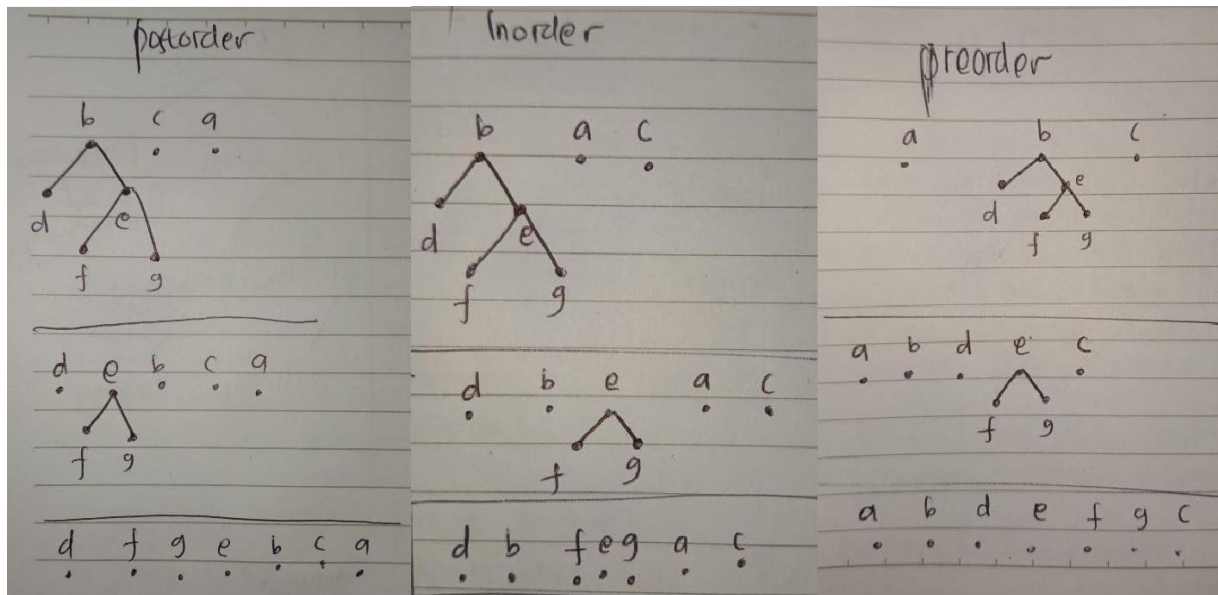 postorder
b c a
d e
f g
d e b c a
f g
d f g e b c a
Inorder
b a c
d e
f g
d b e a c
f g
d b f e g a c
preorder
a b c
d e
f g
a b d e c
f g
a b d e f g c